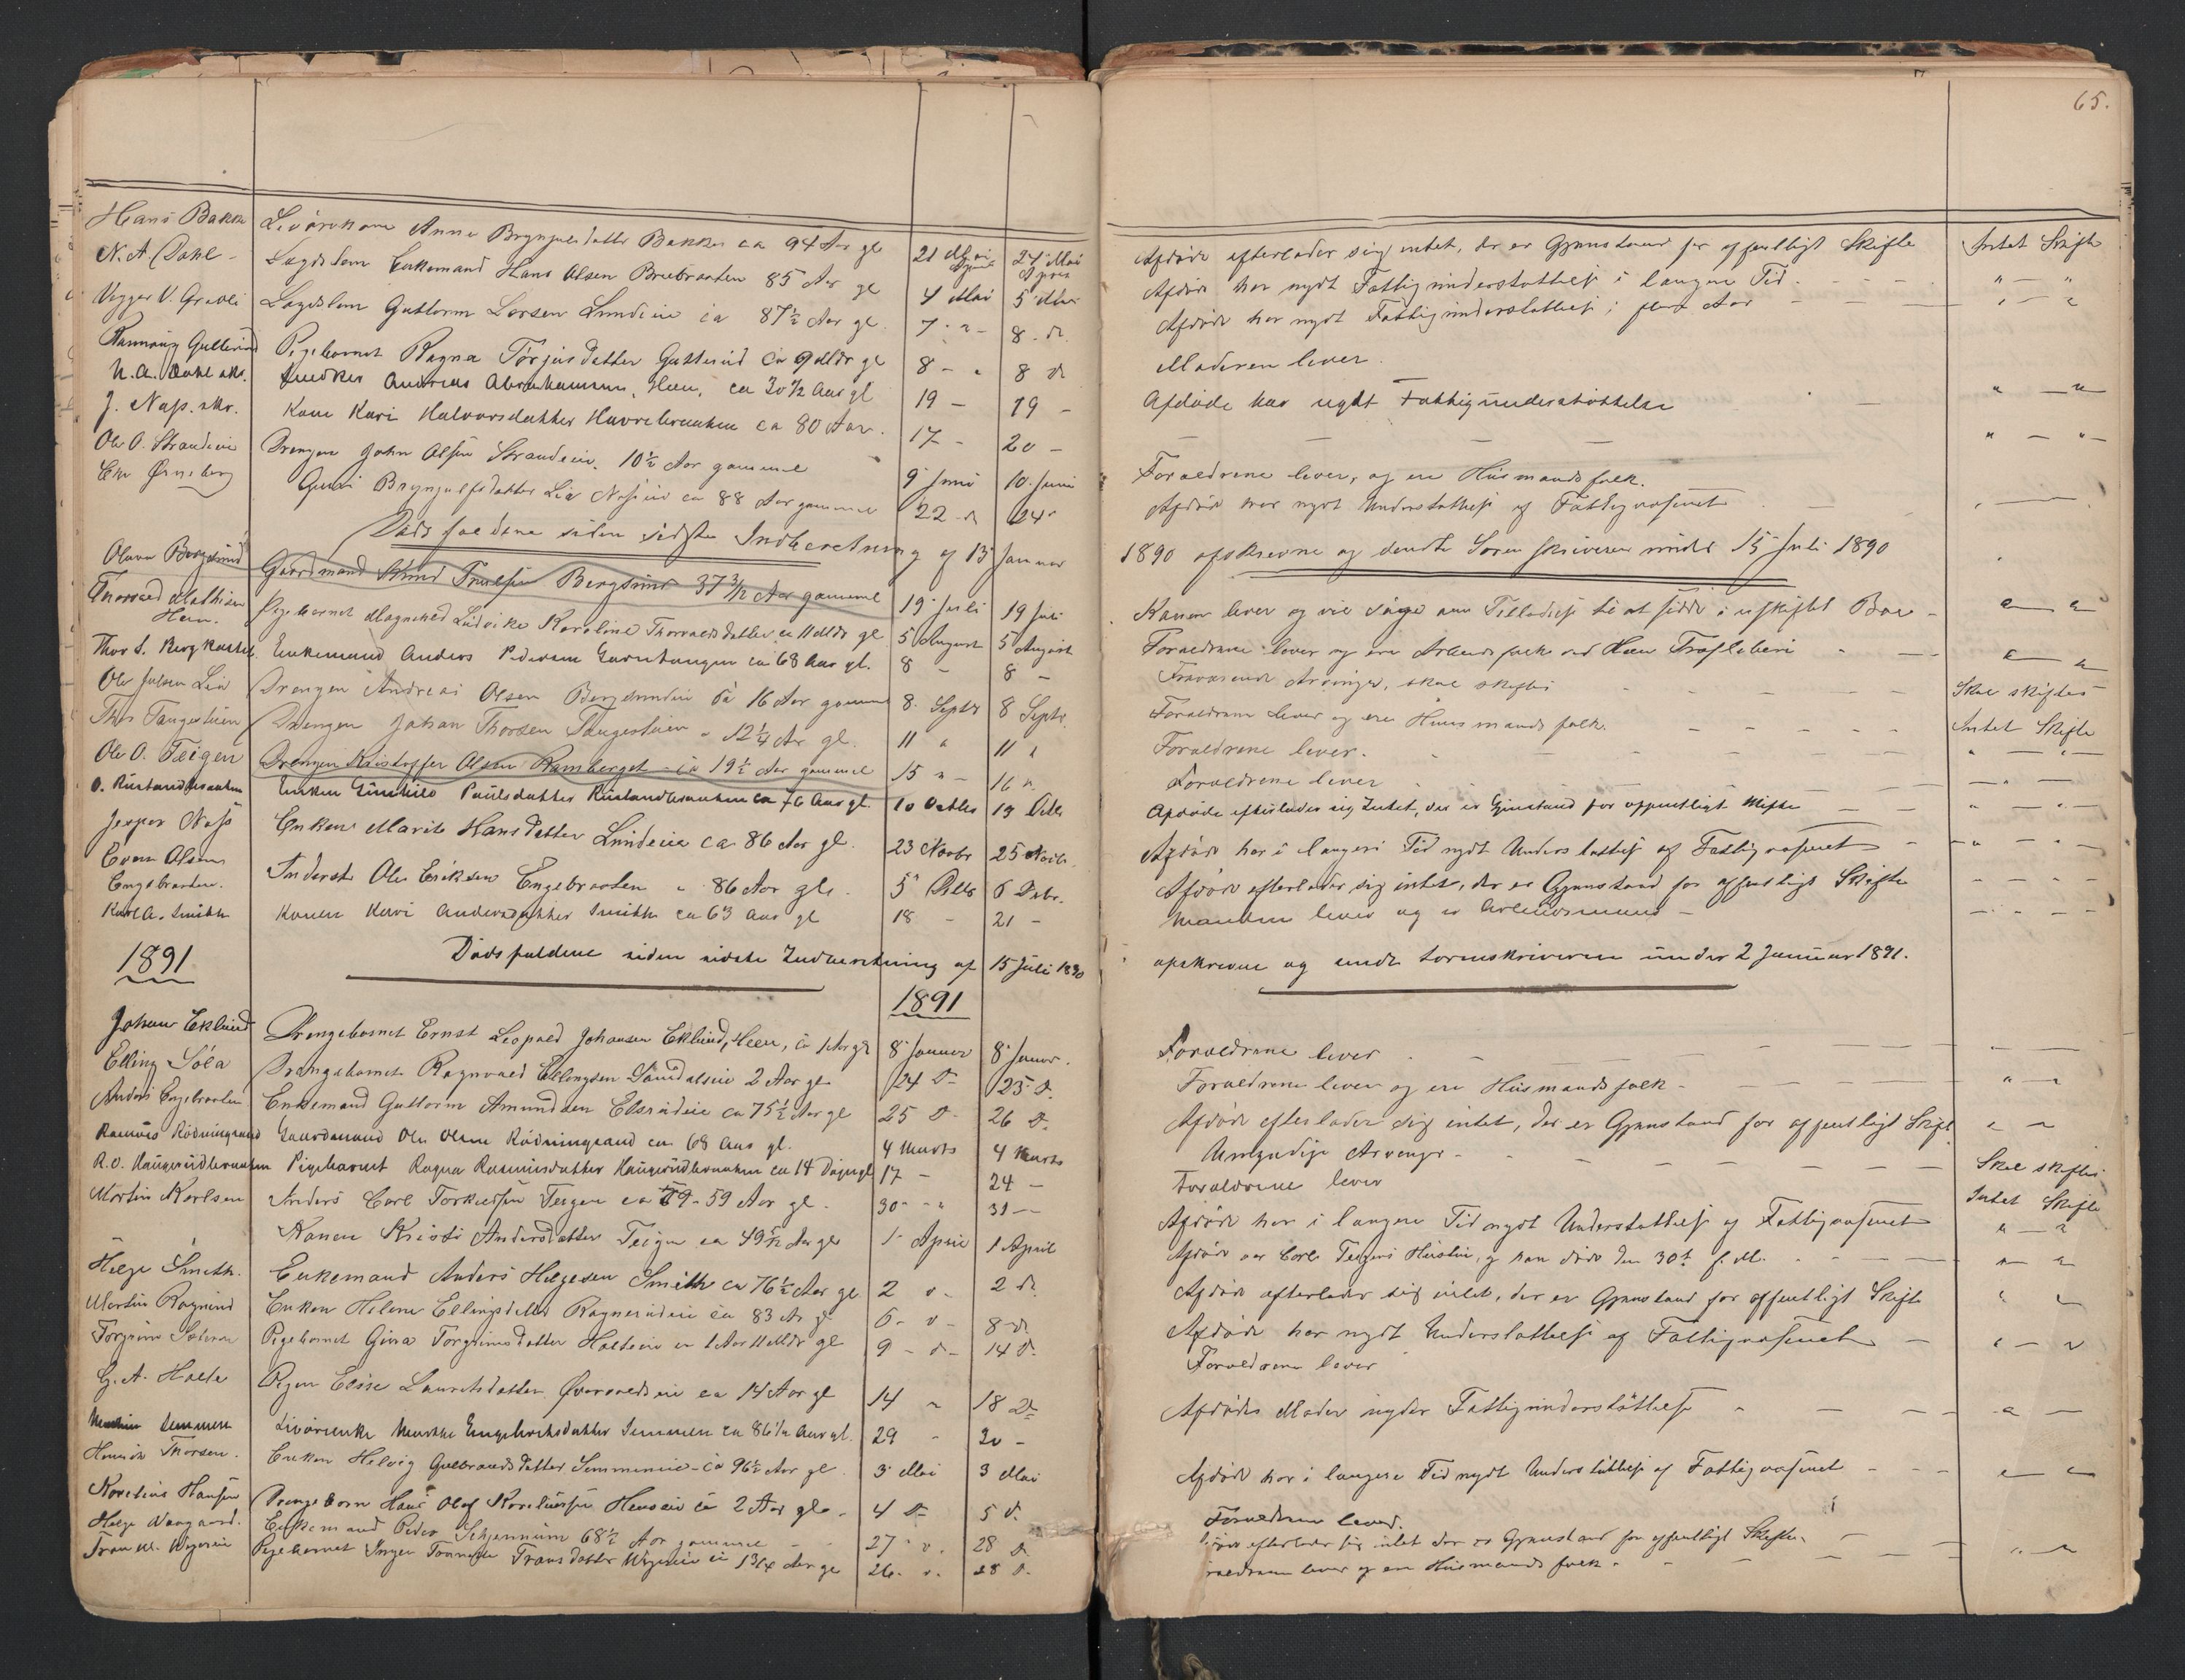 65.
Hans Bakke Livørekone Anne Brynjulsdatter Bakke ca 94 Aar gl 21 Mai April 24 Mai April Afdøde efterlader sig intet, der er Gjenstand for offentligt Skifte Intet Skifte
N. A. Dahl - Lægdslem Enkemand Hans Olsen Brebraaten 85 Aar gl 4 Mai 5 Mai Afdøde har nydt Fattigunderstøttelse i længere Tid - - - " — "
Vegger V. Gravli Lægdslem Guttorm Larsen Lundeie ca 87½ Aar gl. 7 - " - 8 - d. Afdøde har nydt Fattigunderstøttelse i flere Aar - — — " — "
Gulterud Pigebarnet Ragna Torjusdatter Gulterud ca 9 Mdr gl 8 - " 8 d Moderen lever
N. A. Dahl skr. Andreas Abrahamsen, Heen, ca 30½ Aar gl 19 — 19 — Afdøde har nydt Fattigunderstøttelse — " — "
J. Næss. skr. Kone Kari Halvorsdatter Havrebraaten ca 80 Aar. 17 - 20 — — — — — " — " -
Ole O. Strandeie Drengen John Olsen Strandeie. 10½ Aar gammel 9 Juni 10. Juni Forældrene lever, og ere Husmandsfolk.
Chr Ørneberg Guri Brynjulfsdatter Lia Næseie ca 88 Aar gammel 22 - d 24 " Afdøde har nydt Understøttelse af Fattigvæsenet - — " —
Dødsfaldene siden sidste Indberetning af 13 Januar 1890 afskrevne og sendte Sorenskriveren under 15 Juli 1890
Olava Bergsund Gaardmand Knud Truelsen Bergsund 37 3/12 Aar gammel 19 Juli 19 Juli Konen lever og vil søge om Tilladelse til at sidde i uskiftet Boe - " — "
Thorvald Mathisen Heen. Pigebarnet Magnhild Ludvika Karoline Thorvaldsdatter ca 11 Mdr gl 5 August 5 August Forældrene lever og ere Arbeidsfolk ved Heen Træsliberi - — " — "
Thor S. Bergkastet. Enkemand Anders Pedersen Garntangen ca 68 Aar gl. 8 - 8 — Fraværende Arvinger, skal skiftes - - - - Skal skiftes
Ole Julsen Lia Drengen Andreas Olsen Bergsundeie ca 16 Aar gammel 8. Septr 8 Septr. Forældrene lever og ere Husmandsfolk. - - - - - Intet Skifte
Thor Tangestuen Drengen Johan Thorsen Tangestuen " 12¼ Aar gl. 11 " 11 " Forældrene lever. - - - - " — " -
Ole O. Teigen Drengen Kristoffer Olsen Ramberget - ca 19½ Aar gammel 15 " - 16 ". Forældrene lever - - - — - " —
O. Rustandbraaten Enken Gunhild Paulsdatter Rustandbraaten ca 76 Aar gl. 10 Octbr 13 Octr Afdøde efterlader sig Intet, der er Gjenstand for offentligt Skifte — — " — " -
Jesper Næss Enken Marit Hansdatter Lundeie ca 86 Aar gl. 23 Novbr 25 Novbr. Afdøde har i længere Tid nydt Understøttelse af Fattigvæsenet - — " — " -
Even Olsen Engebraaten. Inderst Ole Eriksen Engebraaten " 86 Aar gl. 5 Debr 6 Debr. Afdøde efterlader sig intet, der er Gjenstand for offentligt Skifte - - - -
Karl A. Smith Konen Kari Andersdatter Smith ca 63 Aar gl 18 - 21 — Manden lever og er Arbeidsmand — — " — -
1891 Dødsfaldene siden sidste Indberetning af 15 Juli 1890 afskrevne og sendt Sorenskriveren under 2 Januar 1891.
1891
Johan Eklund Drengebarnet Ernst Leopold Johansen Eklund, Heen, ca 1 Aar gl 8 Januar 8 Januar. Forældrene lever - - — — — —
Elling Sola Drengebarnet Ragnvald Ellingsen Sandalseie 2 Aar gl 24 D- 25 D. Forældrene lever og ere Husmandsfolk - — — — " — "
Anders Engebraaten Enkemand Guttorm Amundsen Elsrudeie ca 75½ Aar gl 25 D- 26 D. Afdøde efterlader sig intet, der er Gjenstand for offentligt Skifte " "
Rasmus Rødningsand Gaardmand Ole Olsen Rødningsand ca 68 Aar gl. 4 Marts 4 Marts Umyndige Arvinger - — — — — Skal skiftes
R. O. Haugerudbraaten Pigebarnet Ragna Rasmusdatter Haugerudbraaten ca 14 Dage gl 17 — 24 — Forældrene lever Intet Skifte
Martin Karlsen Inderst Carl Torkelsen Teigen ca 59 Aar gl - 30 - " 31 — Afdøde har i længere Tid nydt Understøttelse af Fattigvæsenet " — "
Konen Kristi Andersdatter Teigen ca 49 5/12 Aar gl 1 April 1 April Afdøde var Carl Teigens Hustru, og han døde den 30te f. M. - — " — "
Helge Smith. Enkemand Anders Helgesen Smith ca 76½ Aar gl 2 d- 2 d. Afdøde efterlader sig intet, der er Gjenstand for offentligt Skifte " "
Martin Ragnrud Enken Helene Ellingsdatter Ragnerudeie ca 83 Aar gl 6 - d - 8 - d Afdøde har nydt Understøttelse af Fattigvæsenet — " — "
Torgrim Pigebarnet Gina Torgrimsdatter Holteeie ca 1 Aar 11 Mdr gl 9 - d - 14 D. Forældrene lever
G. A. Holte Pigen Elise Lauritsdatter Øvervoldseie ca 14 Aar gl 14 " 18 D. Afdødes Moder nyder Fattigunderstøttelse " — — — " —
Semmen Livøreenke Marthe Engebretsdatter Semmen ca 86½ Aar gl. 29 - 30 -
Henrik Thorsen. Enken Helvig Gulbrandsdatter Semmeneie - ca 96½ Aar gl 3 Mai 3 Mai Afdøde har i længere Tid nydt Understøttelse af Fattigvæsenet - - - " — "
Kornelius Hansen Drengebarn Hans Olaf Korneliussen Henseie ca 2 Aar gl. - 4 D- 5 d. Forældrene lever.
Helge Enkemand Peder Schjennum 68½ Aar gammel - - 27 - d. 28 d. efterlader sig intet der er Gjenstand for offentligt Skifte. —
Frans M. Pigebarnet Inga Fransdatter ca 1¾ Aar gl 26. d. 28 D. lever og ere Husmandsfolk - - — — — " — "